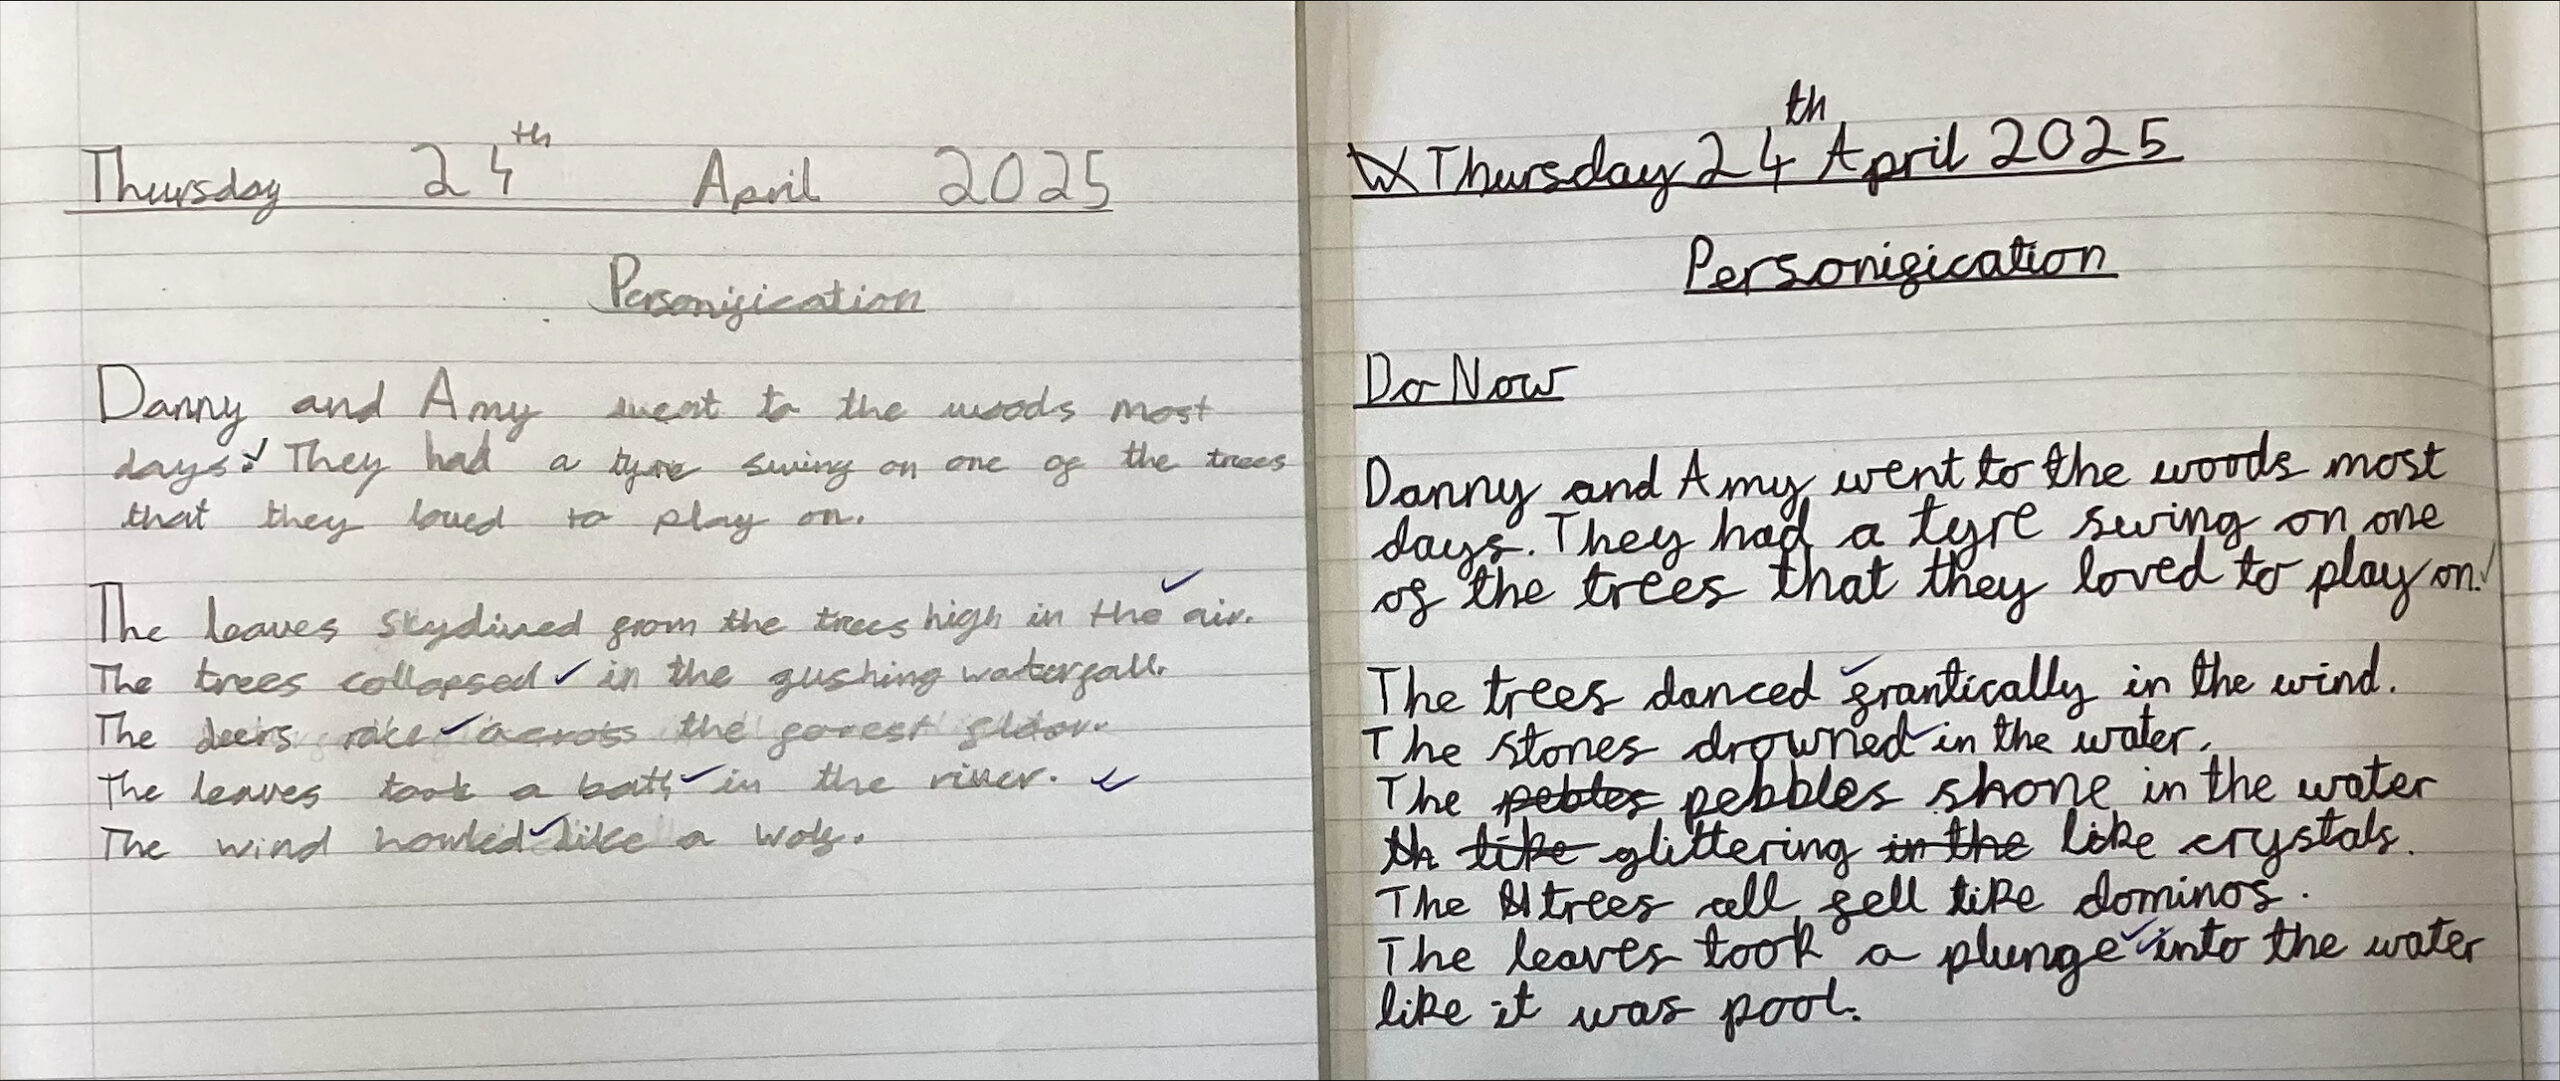 Thursday 24th April 2025
Personification
Danny and Amy went to the woods most
days. They had a tyre swing on one of the trees
that they loved to play on.
The leaves skydived from the trees high in the air.
The trees collapsed in the gushing waterfall.
The deers race across the forest floor.
The leaves took a bath in the river.
The wind howled like a wolf.
Thursday 24th April 2025
Personification
Do Now
Danny and Amy went to the woods most
days. They had a tyre swing on one
of the trees that they loved to play on.
The trees danced frantically in the wind.
The stones drowned in the water.
The pebles pebbles shone in the water
th like glittering in the like crystals.
The trees all fell like dominos.
The leaves took a plunge into the water
like it was pool.